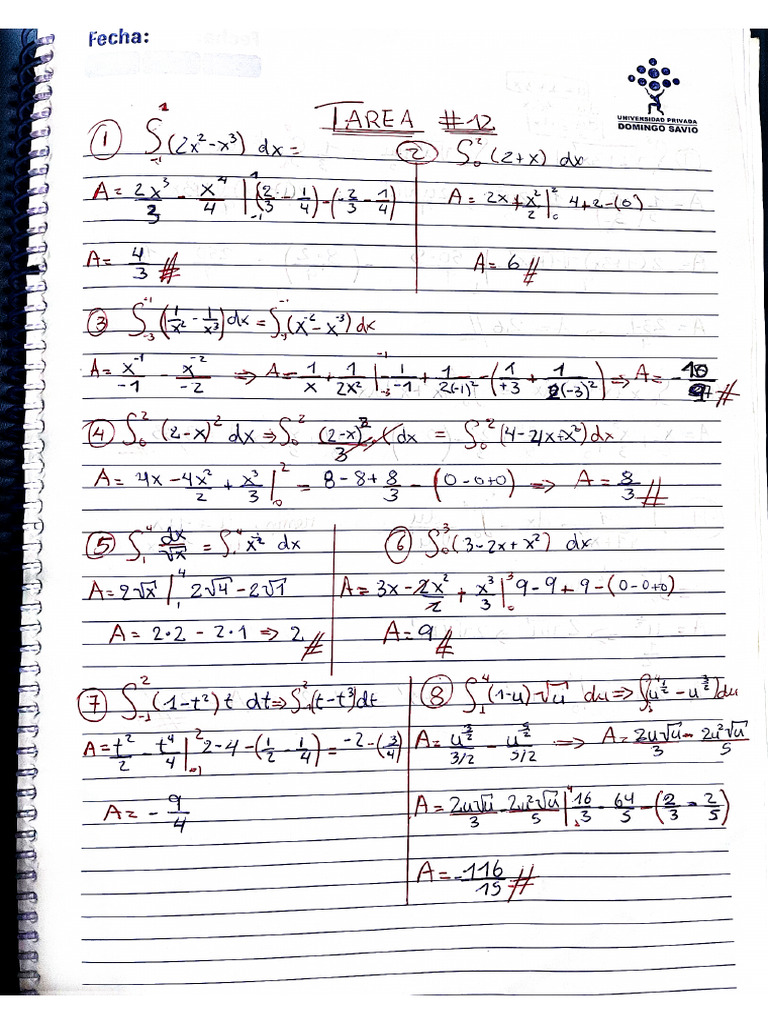 Fecha:
UNIVERSIDAD PRIVADA
DOMINGO SAVIO
TAREA #12
① ∫₋₁¹ (2x² - x³) dx =
A = 2x³/3 - x⁴/4 |₋₁¹ (2/3 - 1/4) - (-2/3 - 1/4)
A = 4/3 //
② ∫₀² (2+x) dx
A = 2x + x²/2 |₀² 4+2-(0)
A = 6 //
③ ∫₋₃⁻¹ (1/x² - 1/x³) dx = ∫₋₃⁻¹ (x⁻² - x⁻³) dx
A = x⁻¹/-1 - x⁻²/-2 ⇒ A = 1/x + 1/2x² |₋₃⁻¹ 1/-1 + 1/2(-1)² - (1/+3 + 1/2(-3)²) ⇒ A = -10/9 //
④ ∫₀² (2-x)² dx ⇒ ∫₀² (2-x)³/3 dx = ∫₀² (4-4x+x²) dx
A = 4x - 4x²/2 + x³/3 |₀² = 8 - 8 + 8/3 - (0-0+0) ⇒ A = 8/3 //
⑤ ∫₁⁴ dx/√x = ∫₁⁴ x^-½ dx
A = 2√x |₁⁴ 2√4 - 2√1
A = 2·2 - 2·1 ⇒ 2 //
⑥ ∫₀³ (3-2x+x²) dx
A = 3x - 2x²/2 + x³/3 |₀³ 9 - 9 + 9 - (0-0+0)
A = 9 //
⑦ ∫₋₁² (1-t²) t dt ⇒ ∫₋₁² (t-t³) dt
A = t²/2 - t⁴/4 |₋₁² 2-4-(1/2 - 1/4) = -2-(3/4)
A = - 9/4
⑧ ∫₁⁴ (1-u) √u du ⇒ ∫₁⁴ (u^½ - u^3/2) du
A = u^3/2 / 3/2 - u^5/2 / 5/2 ⇒ A = 2u√u/3 - 2u²√u/5
A = 2u√u/3 - 2u²√u/5 |₁⁴ 16/3 - 64/5 - (2/3 - 2/5)
A = -116/15 //